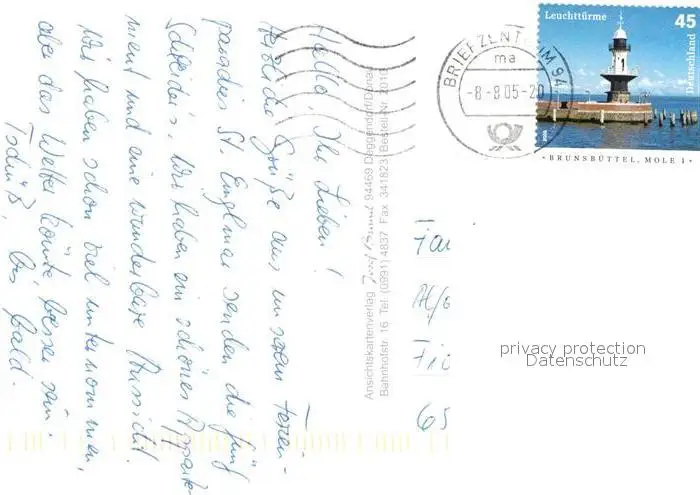 Hallo! Ihr Lieben!
Herzliche Grüße aus unserem Ferien-
paradies St. Englmar senden die fünf
Schneider's. Wir haben ein schönes Apparte-
ment und eine wunderbare Aussicht.
Wir haben schon viel unternommen,
aber das Wetter könnte besser sein.
Tschüß, bis bald.
Ansichtskartenverlag 94469 Deggendorf/Donau
Bahnhofstr. 16 Tel. (0991) 4837 Fax 341823 Bestell-Nr. 2010
BRIEFZENTRUM 94
ma
-8.-8.05-20
Leuchttürme 45
Deutschland
· BRUNSBÜTTEL, MOLE 1 ·
privacy protection
Datenschutz